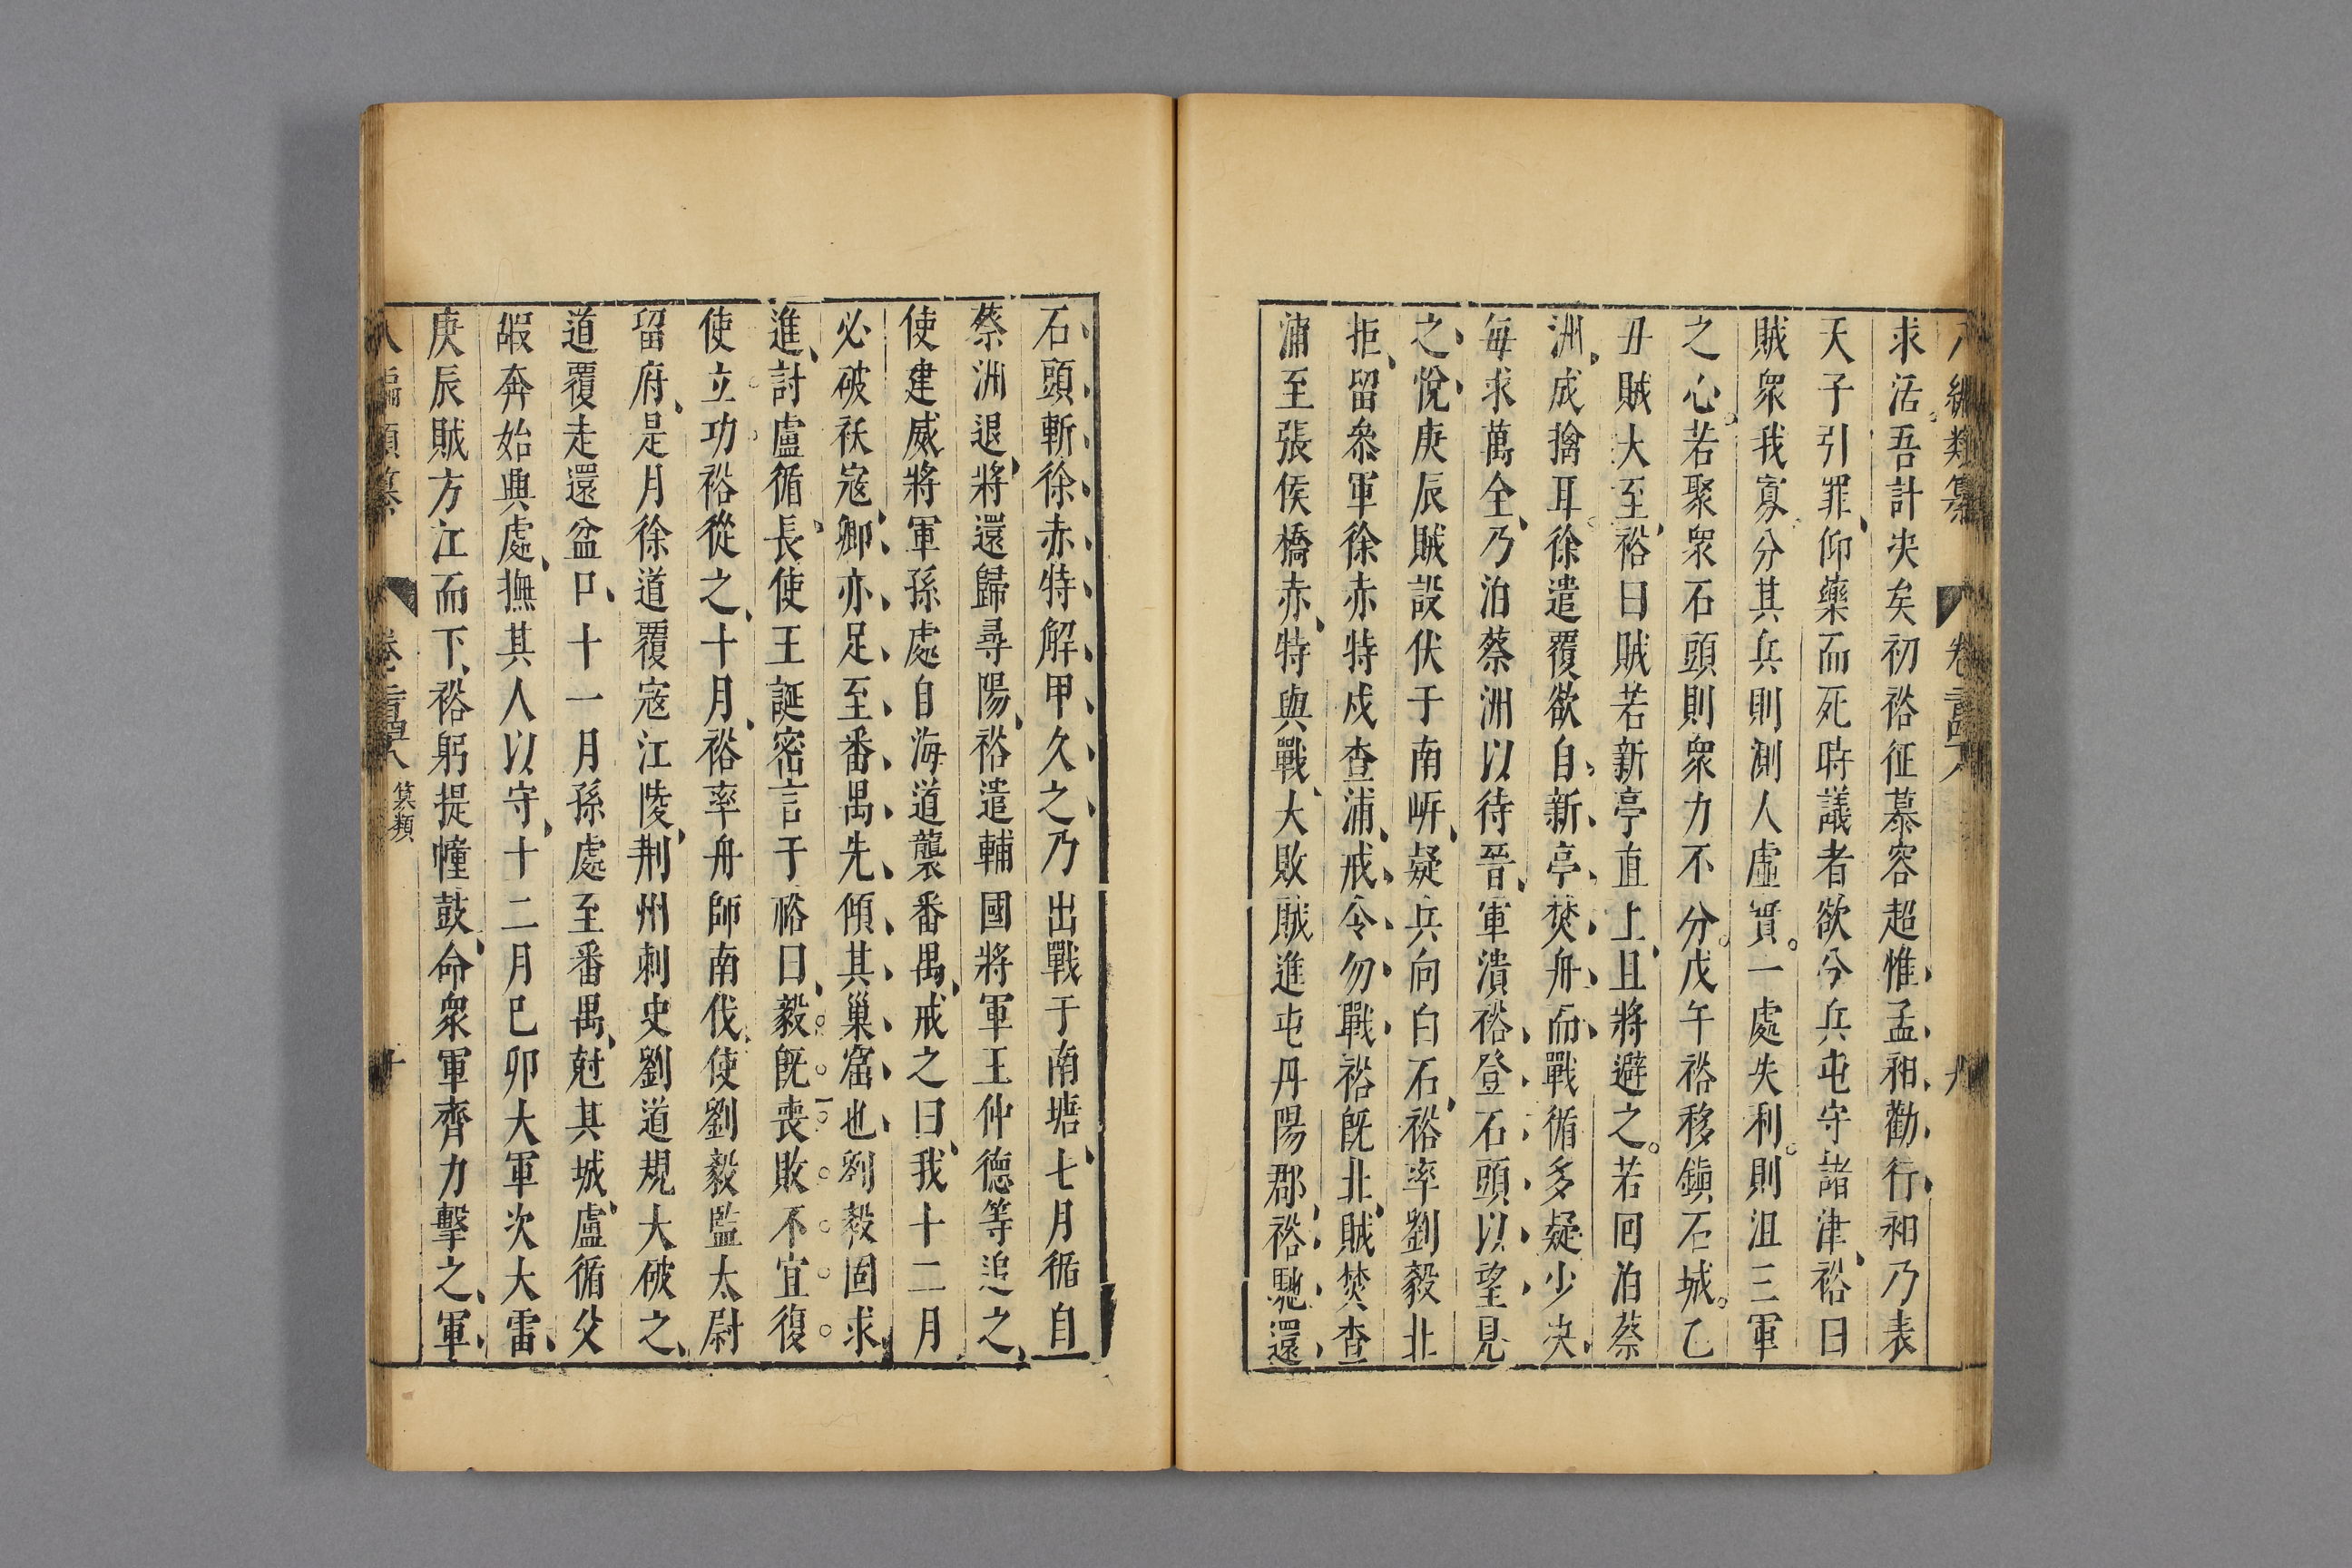 求活吾計决矣初裕征慕容超惟孟昶勸行昶乃表
天子引罪仰藥而死時議者欲分兵屯守諸津裕曰
賊衆我寡分其兵則測人虛實一處失利則沮三軍
之心若聚衆石頭則衆力不分戊午裕移鎭石城乙
丑賊大至裕曰賊若新亭直上且將避之若囘泊蔡
洲成擒耳徐遣覆欲自新亭焚舟而戰循多疑少决
每求萬全乃泊蔡洲以待晉軍潰裕登石頭以望見
之悅庚辰賊設伏于南岍疑兵向白石裕率劉毅北
拒留叅軍徐赤特戍查浦戒令勿戰裕旣北賊焚查
浦至張侯橋赤特與戰大敗賊進屯丹陽郡裕馳還
石頭斬徐赤特解甲久之乃出戰于南塘七月循自
蔡洲退將還歸尋陽裕遣輔國將軍王仲德等追之
使建威將軍孫處自海道襲番禺戒之曰我十二月
必破祅寇卿亦足至番禺先傾其巢窟也劉毅固求
進討盧循長使王誕密言于裕曰毅旣喪敗不宜復
使立功裕從之十月裕率舟師南伐使劉毅監太尉
留府是月徐道覆寇江陵荆州刺史劉道規大破之
道覆走還盆口十一月孫處至番禺尅其城盧循父
嘏奔始興處撫其人以守十二月巳卯大軍次大雷
庚辰賊方江而下裕躬提幢鼓命衆軍齊力擊之軍
筭類